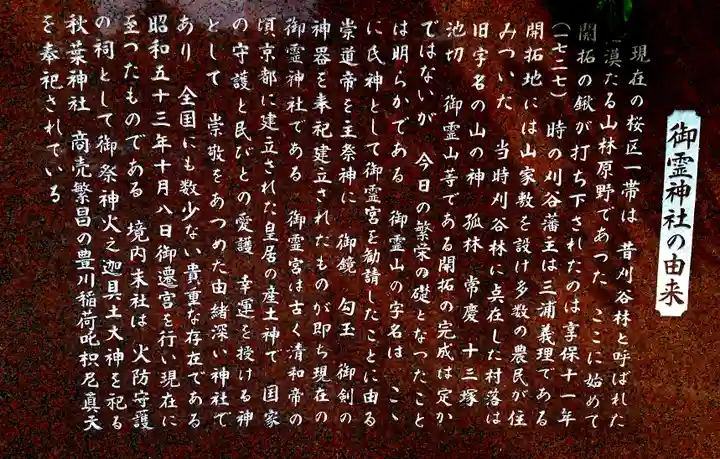 御霊神社の由来
現在の桜区一帯は 昔刈谷林と呼ばれた
漠たる山林原野であった ここに始めて
開拓の鍬が打ち下されたのは享保十一年
(一七二七) 時の刈谷藩主は三浦義理である
開拓地には山家数を設け多数の農民が住
みついた 当時刈谷林に点在した村落は
旧字名の山の神 孤林 常慶 十三塚
池切 御霊山等である開拓の完成は定か
ではないが 今日の繁栄の礎となつたこと
は明らかである 御霊山の字名は こゝ
に氏神として御霊宮を勧請したことに由る
崇道帝を主祭神に 御鏡 勾玉 御剣の
神器を奉祀建立されたものが即ち現在の
御霊神社である 御霊宮は古く清和帝の
頃京都に建立された皇居の産土神で 国家
の守護と民びとの愛護 幸運を授ける神
として 崇敬をあつめた由緒深い神社で
あり 全国にも数少ない貴重な存在である
昭和五十三年十月八日御遷宮を行い現在に
至つたものである 境内末社は 火防守護
の祠として御祭神火之迦具土大神を祀る
秋葉神社 商売繁昌の豊川稲荷叱枳尼真天
を奉祀されている